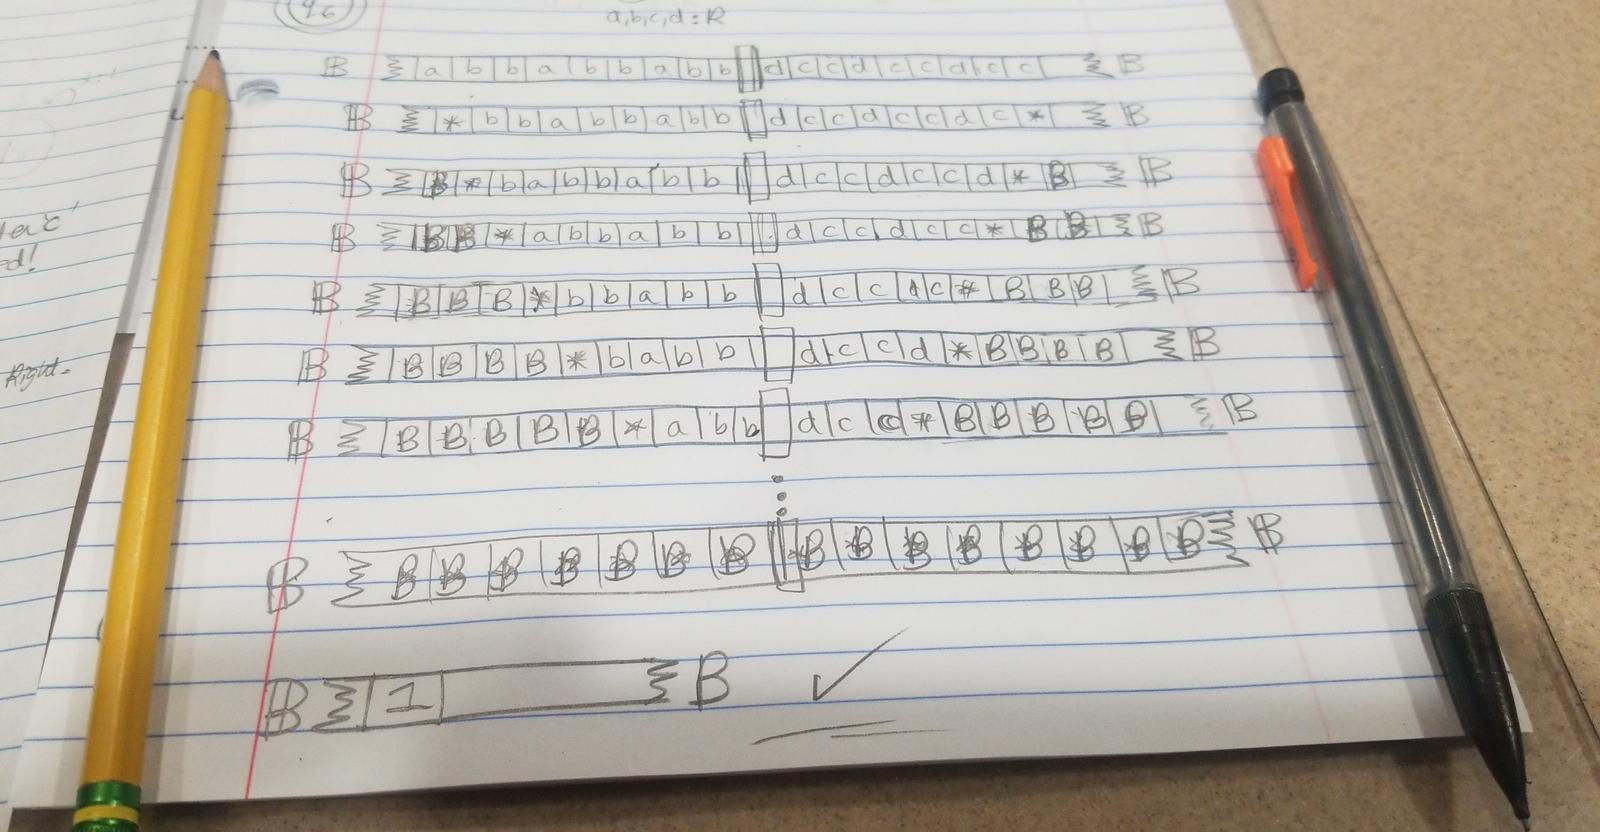 96
a,b,c,d : R
B a b b a b b a b b d c c d c c d c c B
B * b b a b b a b b d c c d c c d c * B
B B * b a b b a b b d c c d c c d * B B
B B B * a b b a b b d c c d c c * B B B
B B B B * b b a b b d c c d c * B B B B
B B B B B * b a b b d c c d * B B B B B
B B B B B B * a b b d c c * B B B B B B
B B B B B B B B B B B B B B B B B
B 1 B
ed!
Right.